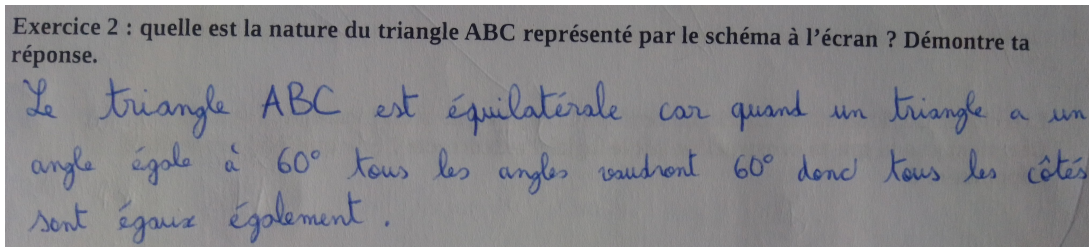 Exercice 2 : quelle est la nature du triangle ABC représenté par le schéma à l'écran ? Démontre ta
réponse.
Le triangle ABC est équilatérale car quand un triangle a un
angle égale à 60° tous les angles vaudront 60° donc tous les côtés
sont égaux également.